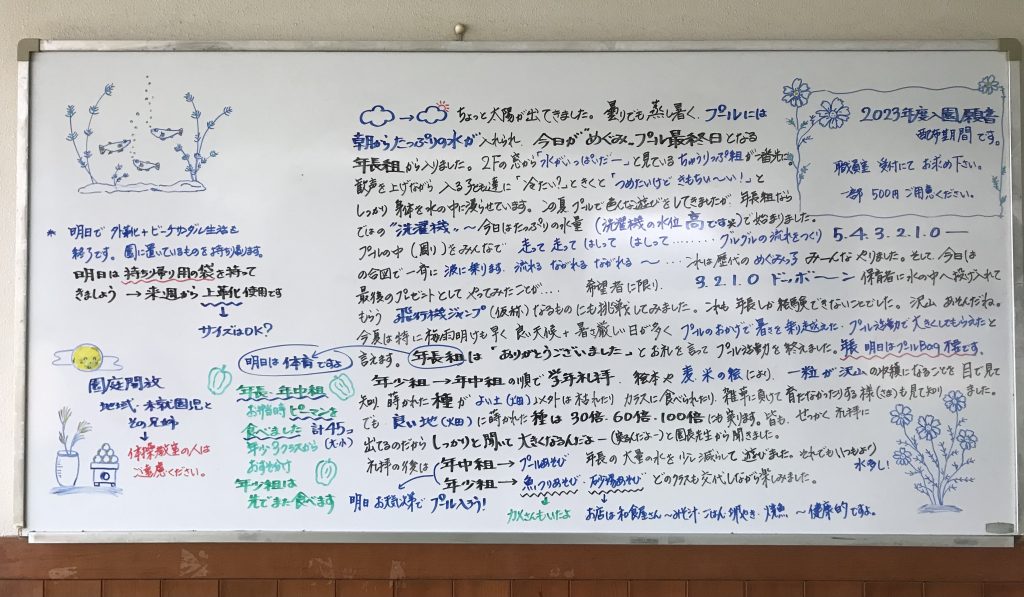 ちょっと太陽が出てきました。曇りでも蒸し暑く、プールには
朝からたっぷりの水が入れられ、今日が"めぐみ。プル最終日となる
年長組から入りました。2Fの窓から「水がいっぱいだー」と見ているちゅうりっぷ組が一番先に
歓声を上げながら入る子ども達に「冷たい?」ときくと「つめたいけどきもちい〜い!」と
しっかり身体を水の中に浸らせています。この夏プールで色んな遊びをしてきましたが、年長組なら
ではの"洗濯機〟〜今日はたっぷりの水量(洗濯機の水位高です笑)で始まりました。
プールの中(周り)をみんなで走って走ってはしってはしって………グルグルの流れをつくり5.4.3.2.1.0―
の合図で一斉に波に乗ります。流れるながれるながれる〜…これは歴代のめぐみっ子みーんなやりました。そして、今日は
最後のプレゼントとしてやってみたことが…希望者に限り、3.2.1.0ドッボ〜ン保育者に水の中へ投げ入れて
もらう飛行機ジャンプ(仮称)なるものにも挑戦してみました。これも年長しか経験できないことでした。沢山あそんだね。
今夏は特に梅雨明けも早く良い天候+暑さ厳しい日が多くプールのおかげで暑さを乗り越えた・プール活動で大きくしてもらえたと
言えます。年長組は「ありがとうございました」とお礼を言ってプール活動を終えました。明日はプールBag様です。
年少組→年中組の順で学年礼拝。絵本や麦、米の絵により、一粒が沢山の収穫になることを目で見て
知り、蒔かれた種がよい土(畑)以外は枯れたりカラスに食べられたり、雑草に負けて育たなかったりする様(さま)も見て知りました。
でも良い地(畑)に蒔かれた種は30倍、60倍、100倍にも実ります。皆も、せっかく礼拝に
出てるのだからしっかりと聞いて大きくなるんだよー(実るんだよー)と園長先生から聞きました。
礼拝の後は年中組→プールあそび年長の大量の水を少し減らして遊びました。それでもいつもより水多し!
年少組→魚つりあそび・砂場あそびどのクラスも交代しながら楽しみました。
カメさんもいたよ
お店は和食屋さん〜みそ汁・ごはん・焼魚〜健康的ですよ。
明日お天気が様でプール入ろう!
明日は体育ですよ
2023年度入園願書
配布期間です。
職員室受付にてお求め下さい。
一部500円ご用意ください。
*明日で外靴+ビーチサンダル生活を
終了です。園に置いているものを持ち帰ります。
明日は持ち帰り用の袋を持って
きましょう→来週から上靴化使用です
サイズはOK?
園庭開放
地域・未就園児と
その兄姉
体操教室の人は
ご遠慮ください。
年長・年中組
お当番ピーマンを
食べました計45コ
(大・小)
年少3クラスから
おすそ分け
年少組は
先でまた食べます